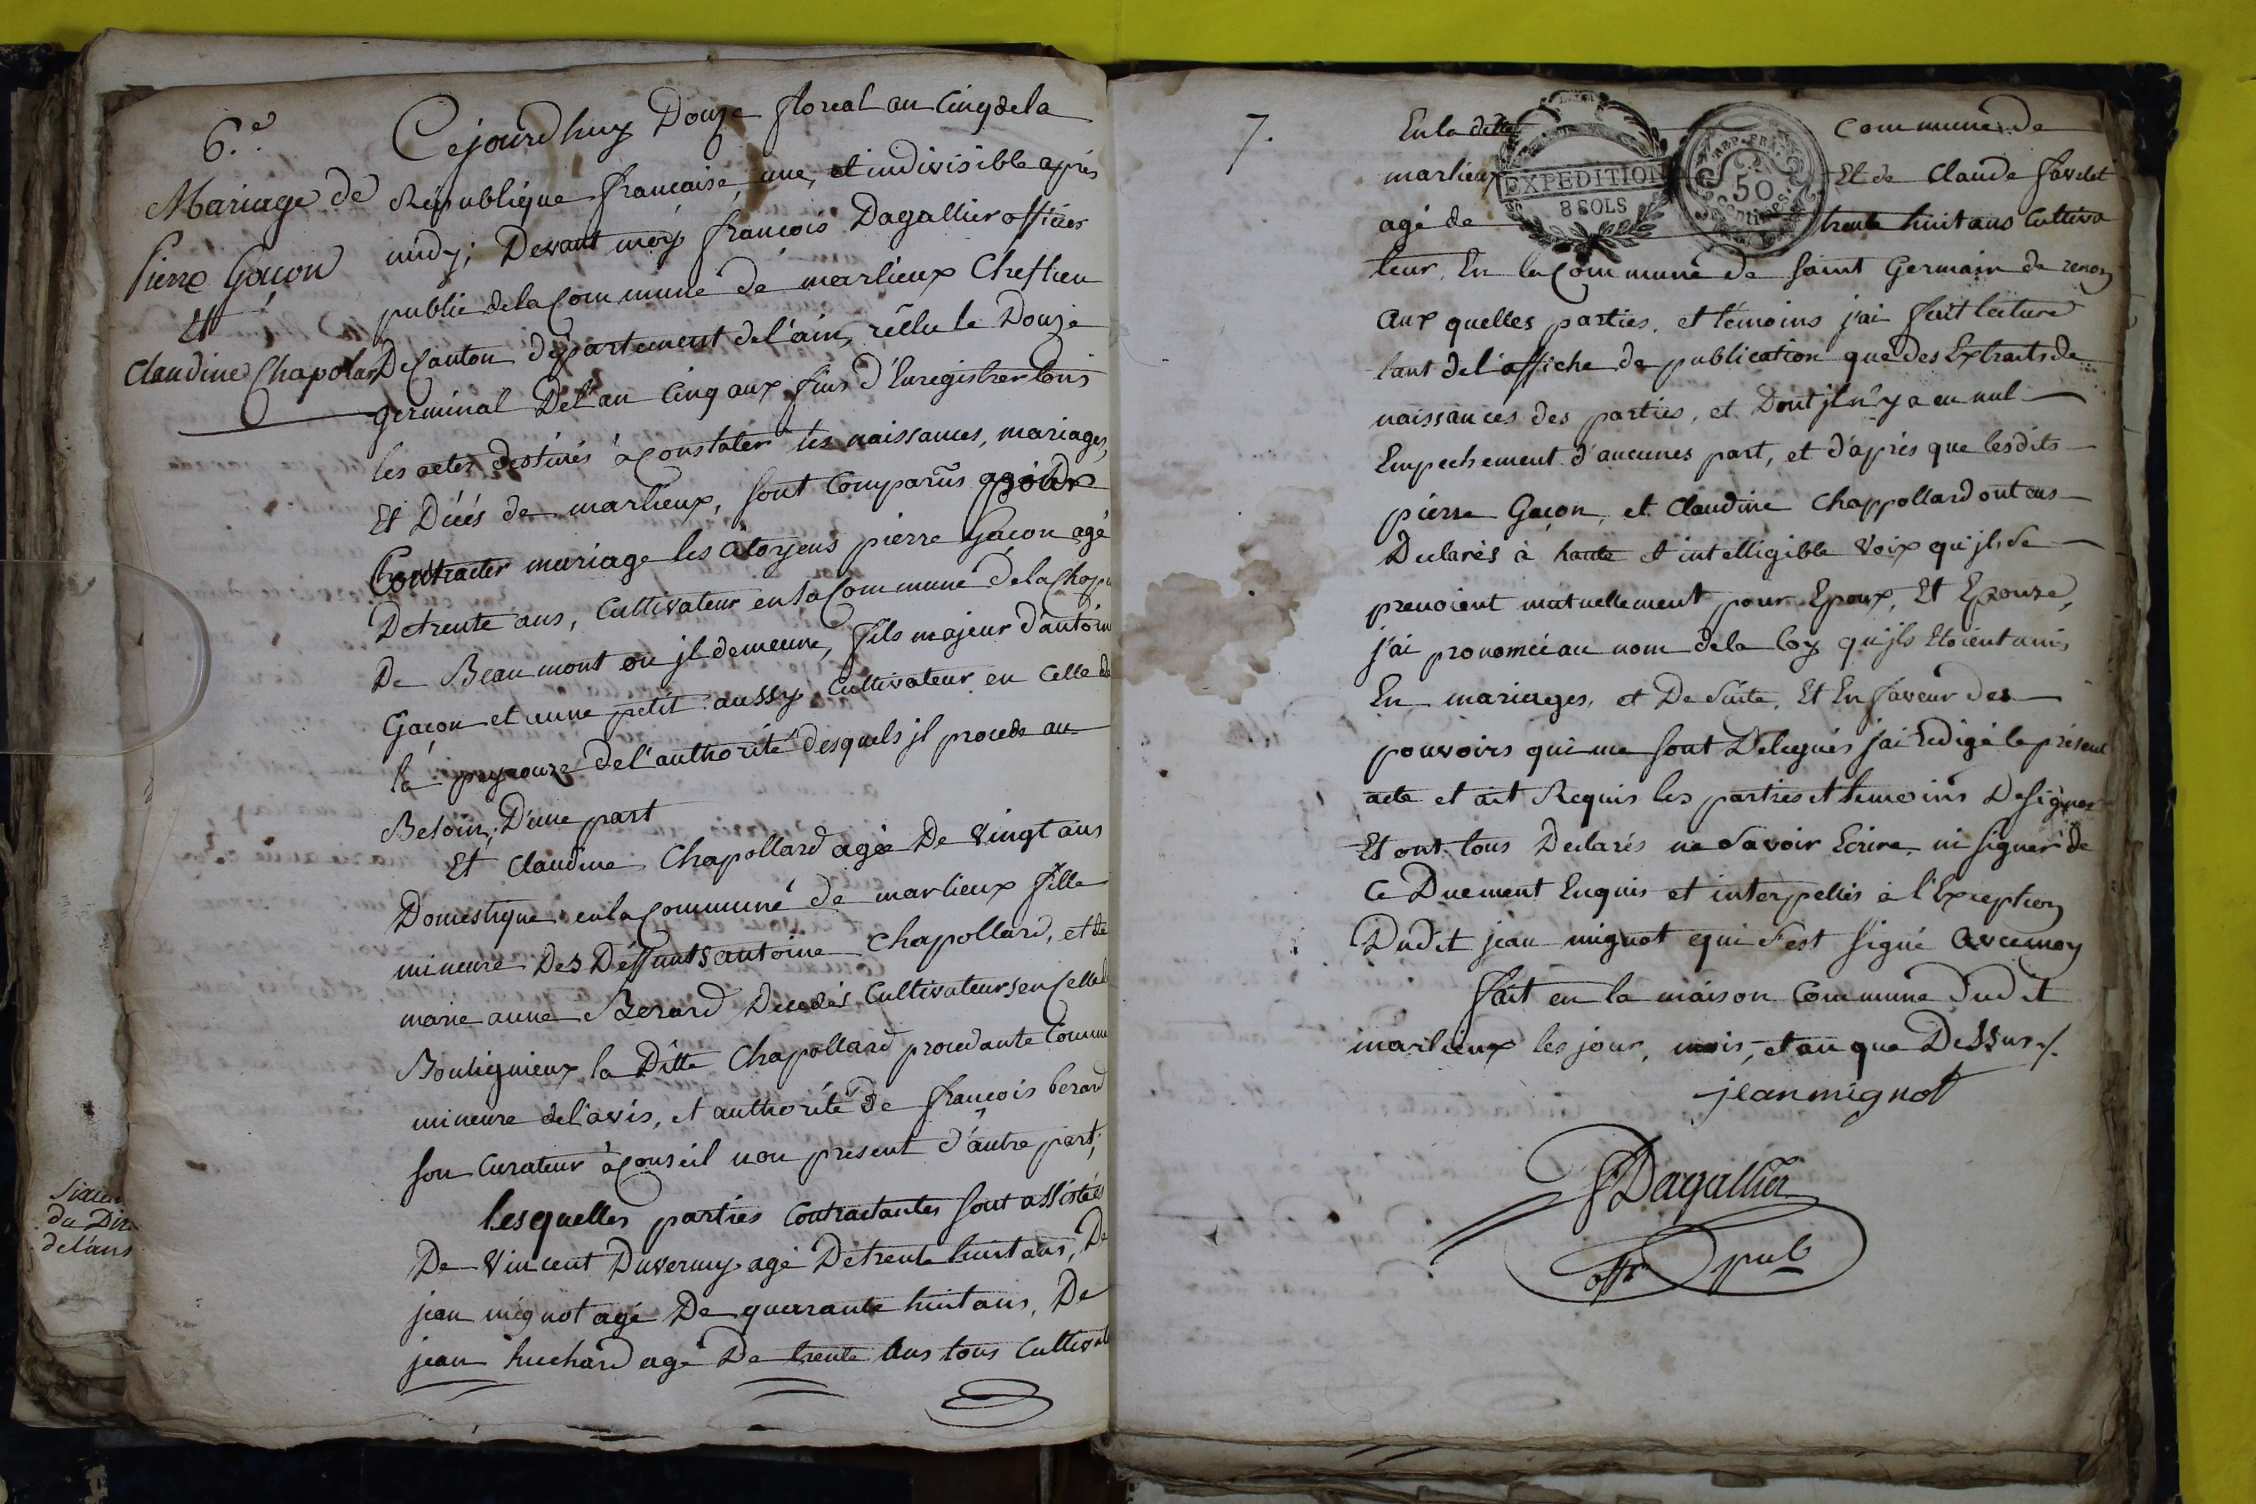 6.e
Mariage de
Pierre Gacon
Et
Claudine Chapolard
Cejourdhuy Douze floreal an Cinq de la
République française, une, et indivisible après
midy; Devant moÿ françois Dagallier officier
public de la Commune de marlieux Cheflieu
De Canton département de l'ain, réélu le Douze
germinal De l'an Cinq aux fins d'Enregistrer tous
les actes destinés à Constater les naissances, mariages,
Et Décés de marlieux, sont Comparus pour
Contracter mariage les Citoyens pierre Gacon agé
De trente ans, Cultivateur en la Commune de la Chap
De Beaumont ou jl demeure, fils majeur d'antoin
Gacon et anne petit aussy Cultivateur en Celle de
la peyrouze de l'authorité desquels jl procede au
Besoin; D'une part
Et Claudine Chapollard agée De Vingt ans
Domestique en la Commune de marlieux fille
mineure Des Deffunts antoine Chapollard, et de
marie anne Berard Decedés Cultivateurs en Celle de
Bouligneux la Ditte Chapollard procedante Comme
mineure de l'avis, et authorité De françois berard
son Curateur à Conseil non present d'autre part;
lesquelles parties Contractantes sont assistées
De Vincent Duverny agé De trente huit ans, De
jean mignot agé De quarante huit ans, De
jean huchard agé De trente Ans tous Cultivat
Sixiem
du Dix
de l'ans
7.
En la ditte Commune de
marlieux Et de Claude favelet
EXPEDITION
8 SOLS
REP. FRA.
50
Centimes
agé de trente huit ans Cultiva
teur En la Commune de saint Germain de renon
Aux quelles parties, et témoins j'ai fait lecture
tant de l'affiche de publication que des Extraits de
naissances des parties, et Dont jl n'y a eu nul
Empechement d'aucunes part, et d'après que lesdits
pierre Gacon, et Claudine Chappollard ont eus
Declarés à haute et intelligible Voix qu'jls se
prenoient mutuellement pour Epoux, Et Epouze,
j'ai prononcé au nom de la loy qu'jls Etoient unis
En mariages, et De suite, Et En faveur des
pouvoirs qui me sont Delegués j'ai Redigé le présent
acte et ait Requis les parties et temoins De signer
Et ont tous Declarés ne savoir Ecrire, ni signer de
Ce Duement Enquis et interpellés à l'Exception
Dudit jean mignot qui s'est signé Avec moy
fait en la maison Commune dudit
marlieux les jour, mois, et an que Dessus ./.
jean mignot
f Dagallier
offr pub